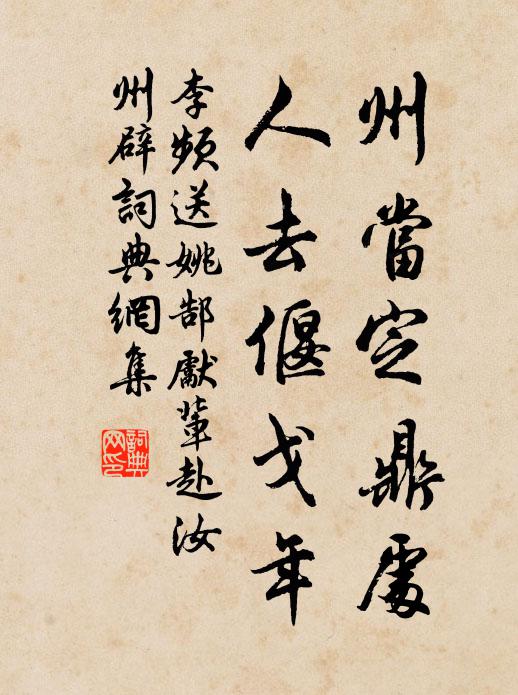 州當定鼎處
人去偃戈年
李頻送姚郜獻輦赴汝
州辟詞典網集
詞典网印